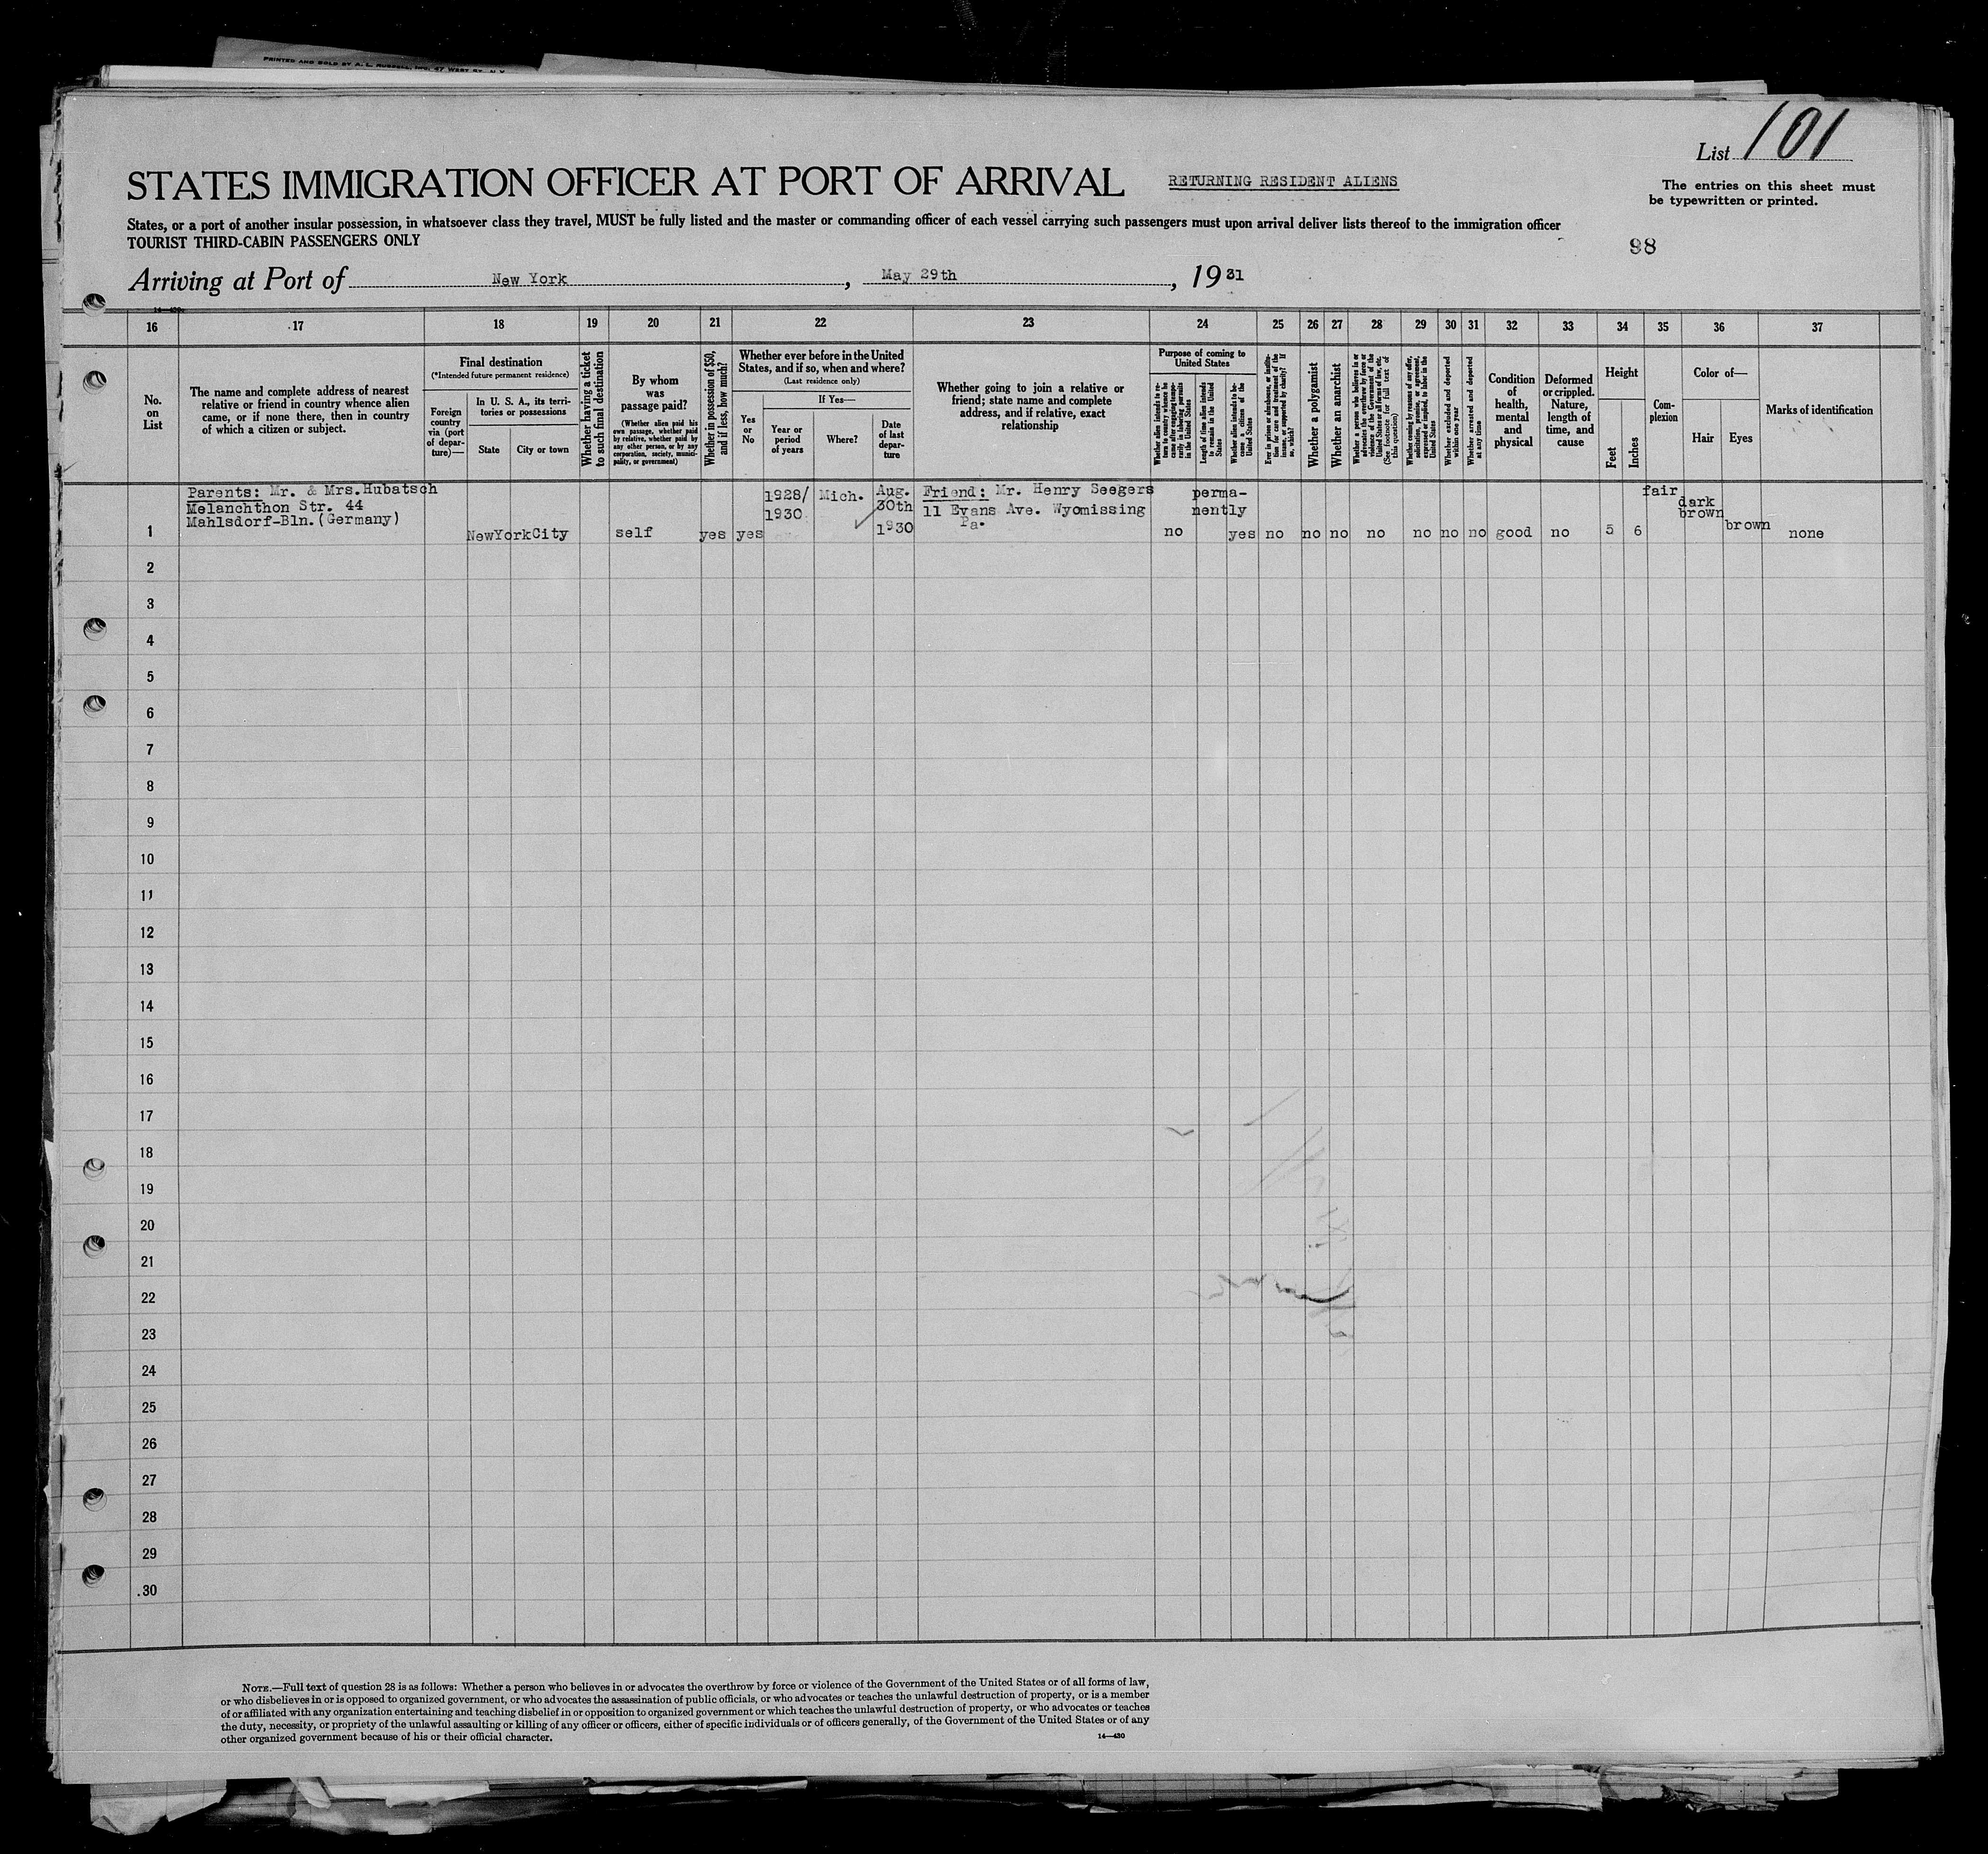 PRINTED AND SOLD BY A. L. RUSSELL, INC. 47 WEST ST. N.Y.
List 101
STATES IMMIGRATION OFFICER AT PORT OF ARRIVAL
RETURNING RESIDENT ALIENS
The entries on this sheet must
be typewritten or printed.
States, or a port of another insular possession, in whatsoever class they travel, MUST be fully listed and the master or commanding officer of each vessel carrying such passengers must upon arrival deliver lists thereof to the immigration officer
TOURIST THIRD-CABIN PASSENGERS ONLY
98
Arriving at Port of New York, May 29th, 1931
16 17 18 19 20 21 22 23 24 25 26 27 28 29 30 31 32 33 34 35 36 37
No.
on
List
The name and complete address of nearest
relative or friend in country whence alien
came, or if none there, then in country
of which a citizen or subject.
Final destination
(*Intended future permanent residence)
Foreign
country
via (port
of depar-
ture)—
In U. S. A., its terri-
tories or possessions
State
City or town
Whether having a ticket
to such final destination
By whom
was
passage paid?
(Whether alien paid his
own passage, whether paid
by relative, whether paid by
any other person, or by any
corporation, society, munici-
pality, or government)
Whether in possession of $50,
and if less, how much?
Whether ever before in the United
States, and if so, when and where?
(Last residence only)
Yes
or
No
If Yes—
Year or
period
of years
Where?
Date
of last
depar-
ture
Whether going to join a relative or
friend; state name and complete
address, and if relative, exact
relationship
Purpose of coming to
United States
Whether alien intends to re-
turn to country whence he
came after engaging tempo-
rarily in laboring pursuits
in the United States
Length of time alien intends
to remain in the United
States
Whether alien intends to be-
come a citizen of the
United States
Ever in prison or almshouse, or institu-
tion for care and treatment of the
insane, or supported by charity? If
so, which?
Whether a polygamist
Whether an anarchist
Whether a person who believes in or
advocates the overthrow by force or
violence of the Government of the
United States or all forms of law, etc.
(See footnote for full text of
this question)
Whether coming by reason of any offer,
solicitation, promise, or agreement,
expressed or implied, to labor in the
United States
Whether excluded and deported
within one year
Whether arrested and deported
at any time
Condition
of
health,
mental
and
physical
Deformed
or crippled.
Nature,
length of
time, and
cause
Height
Feet
Inches
Com-
plexion
Color of—
Hair
Eyes
Marks of identification
Parents: Mr. & Mrs. Hubatsch
Melanchthon Str. 44
Mahlsdorf-Bln. (Germany)
1 NewYorkCity self yes yes
1928/
1930
Mich.
Aug.
30th
1930
Friend: Mr. Henry Seegers
11 Evans Ave. Wyomissing
Pa.
no
perma-
nently
yes no no no no no no no good no 5 6
fair
dark
brown
brown
none
2
3
4
5
6
7
8
9
10
11
12
13
14
15
16
17
18
19
20
21
22
23
24
25
26
27
28
29
30
NOTE.—Full text of question 28 is as follows: Whether a person who believes in or advocates the overthrow by force or violence of the Government of the United States or of all forms of law,
or who disbelieves in or is opposed to organized government, or who advocates the assassination of public officials, or who advocates or teaches the unlawful destruction of property, or is a member
of or affiliated with any organization entertaining and teaching disbelief in or opposition to organized government or which teaches the unlawful destruction of property, or who advocates or teaches
the duty, necessity, or propriety of the unlawful assaulting or killing of any officer or officers, either of specific individuals or of officers generally, of the Government of the United States or of any
other organized government because of his or their official character.
14—430